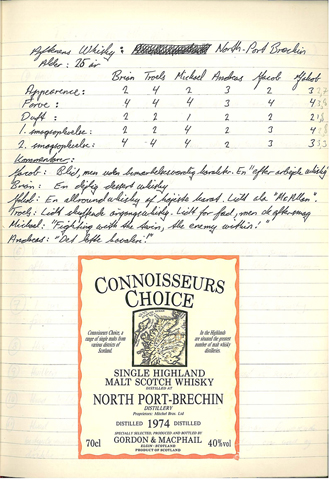 Aftenens Whisky: North-Port Brechin
Alder: 25 år
Brian Troels Michael Andreas Jacob Jakob
Appearence: 2 4 2 3 2 3
Farve: 4 4 4 3 4 4
Duft: 2 2 1 2 2 2
1. smagsoplevelse: 2 2 4 2 3 4
2. smagsoplevelse: 4 4 4 2 3 3
Kommentarer:
Jacob: Blid, men uden bemærkelsesværdig karakter. En "after arbejde whisky"
Brian: En dejlig dessert whisky
Jakob: En allround whisky af højeste karat. Lidt ala "McAllan".
Troels: Lidt skuffende Lidt for fad, men
Michael: "Fighting with the twin, the enemy within!"
Andreas: "Det lette
CONNOISSEURS
CHOICE
Connoisseurs Choice, a
range of single malts from
various districts of
Scotland.
In the Highlands
are situated the greatest
number of malt whisky
distilleries.
SINGLE HIGHLAND
MALT SCOTCH WHISKY
DISTILLED AT
NORTH PORT-BRECHIN
DISTILLERY
Proprietors: Mitchel Bros. Ltd
DISTILLED 1974 DISTILLED
SPECIALLY SELECTED, PRODUCED AND BOTTLED BY
70cl GORDON & MACPHAIL 40%vol
ELGIN · SCOTLAND
PRODUCT OF SCOTLAND